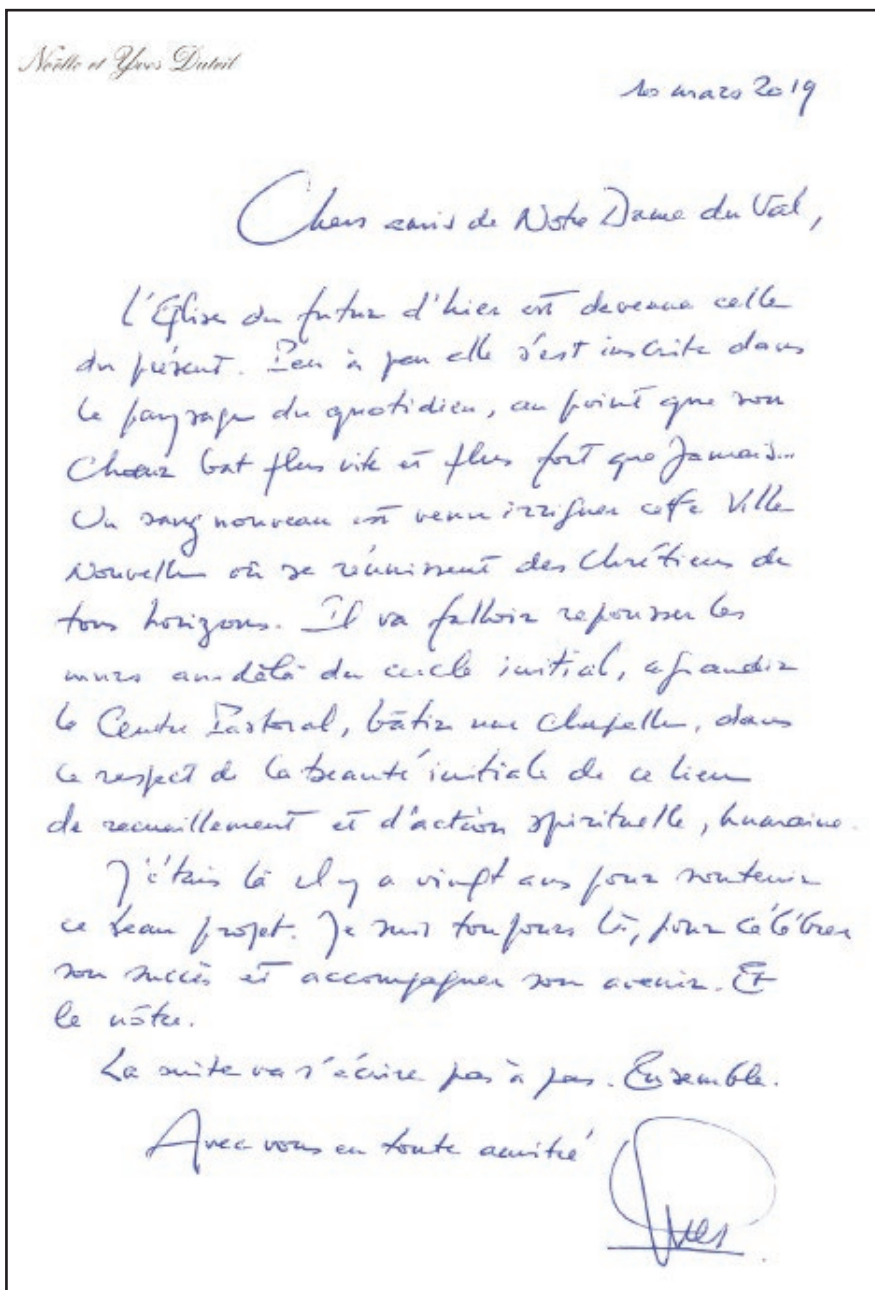 Noëlle et Yves Duteil
10 mars 2019
Chers amis de Notre Dame du Val,
L'Eglise du futur d'hier est devenue celle
du présent. Peu à peu elle s'est inscrite dans
le paysage du quotidien, au point que son
Chœur bat plus vite et plus fort que Jamais...
Un sang nouveau est venu irriguer cette Ville
Nouvelle où se réunissent des Chrétiens de
tous horizons. Il va falloir repousser les
murs au-delà du cercle initial, agrandir
le Centre Pastoral, bâtir une Chapelle, dans
le respect de la beauté initiale de ce lieu
de recueillement et d'action spirituelle, humaine.
J'étais là il y a vingt ans pour soutenir
ce beau projet. Je suis toujours là, pour célébrer
son succès et accompagner son avenir. Et
le nôtre.
La suite va s'écrire pas à pas. Ensemble.
Avec vous en toute amitié
Yves